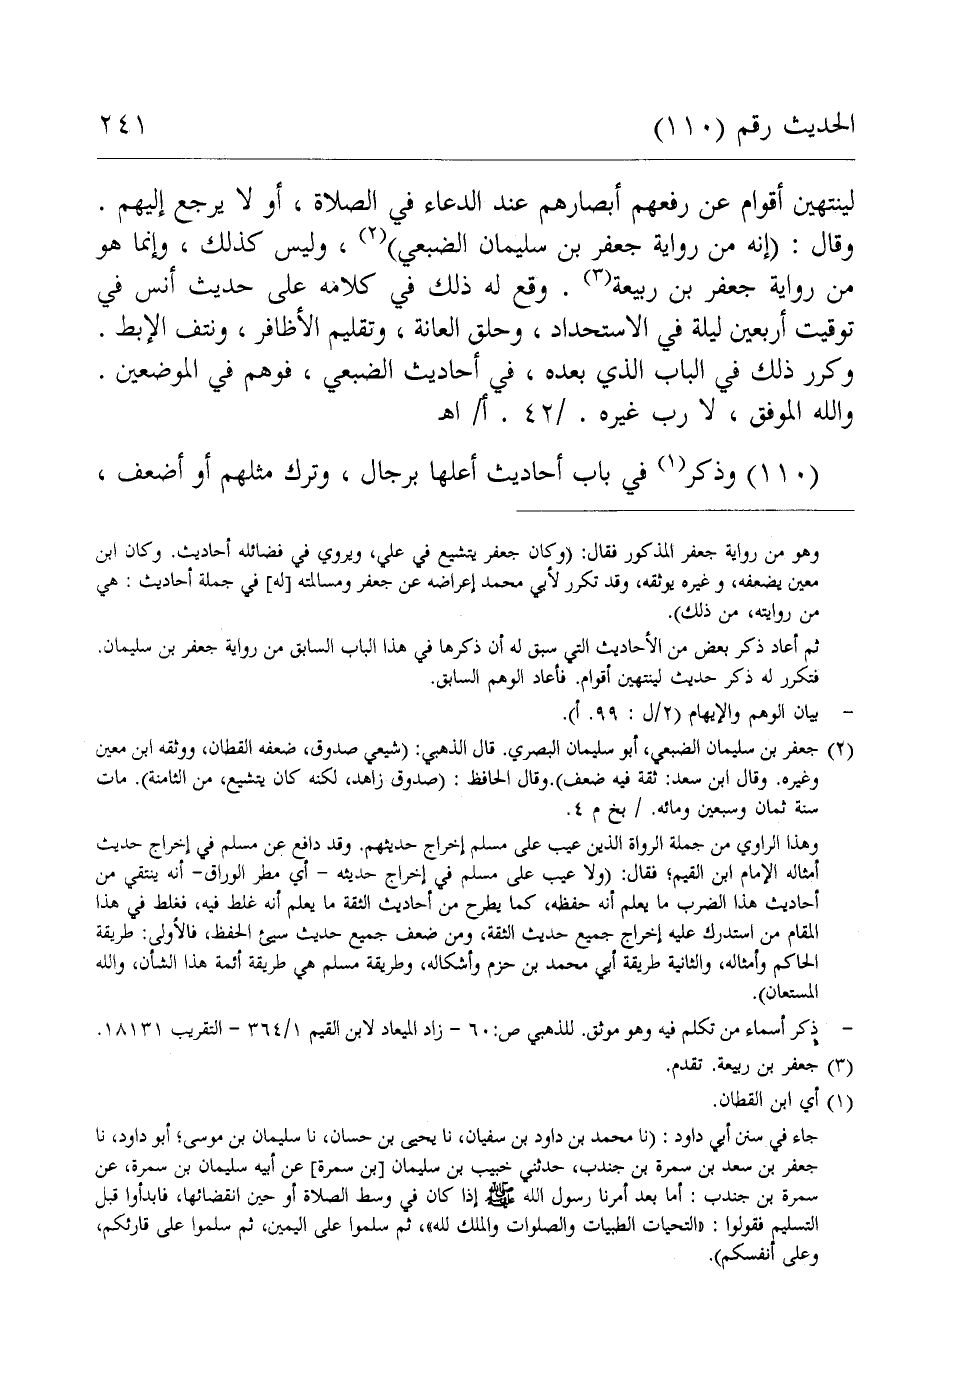 الحديث رقم (١١٠)
٢٤١
لينتهين أقوام عن رفعهم أبصارهم عند الدعاء في الصلاة ، أو لا يرجع إليهم .
وقال : (إنه من رواية جعفر بن سليمان الضبعي)(٢) ، وليس كذلك ، وإنما هو
من رواية جعفر بن ربيعة(٣) . وقع له ذلك في كلامه على حديث أنس في
توقيت أربعين ليلة في الاستحداد ، وحلق العانة ، وتقليم الأظافر ، ونتف الإبط .
وكرر ذلك في الباب الذي بعده ، في أحاديث الضبعي ، فوهم في الموضعين .
والله الموفق ، لا رب غيره . /٤٢ . أ/ اهـ
(١١٠) وذكر(١) في باب أحاديث أعلها برجال ، وترك مثلهم أو أضعف ،
وهو من رواية جعفر المذكور فقال: (وكان جعفر يتشيع في علي، ويروي في فضائله أحاديث. وكان ابن
معين يضعفه، و غيره يوثقه، وقد تكرر لأبي محمد إعراضه عن جعفر ومسالمته [له] في جملة أحاديث : هي
من روايته، من ذلك).
ثم أعاد ذكر بعض من الأحاديث التي سبق له أن ذكرها في هذا الباب السابق من رواية جعفر بن سليمان.
فتكرر له ذكر حديث لينتهين أقوام. فأعاد الوهم السابق.
– بيان الوهم والإيهام (٢/ل : ٩٩. أ).
(٢) جعفر بن سليمان الضبعي، أبو سليمان البصري. قال الذهبي: (شيعي صدوق، ضعفه القطان، ووثقه ابن معين
وغيره. وقال ابن سعد: ثقة فيه ضعف).وقال الحافظ : (صدوق زاهد، لكنه كان يتشيع، من الثامنة). مات
سنة ثمان وسبعين ومائه. / بخ م ٤.
وهذا الراوي من جملة الرواة الذين عيب على مسلم إخراج حديثهم. وقد دافع عن مسلم في إخراج حديث
أمثاله الإمام ابن القيم؛ فقال: (ولا عيب على مسلم في إخراج حديثه – أي مطر الوراق– أنه ينتقي من
أحاديث هذا الضرب ما يعلم أنه حفظه، كما يطرح من أحاديث الثقة ما يعلم أنه غلط فيه، فغلط في هذا
المقام من استدرك عليه إخراج جميع حديث الثقة، ومن ضعف جميع حديث سيئ الحفظ، فالأولى: طريقة
الحاكم وأمثاله، والثانية طريقة أبي محمد بن حزم وأشكاله، وطريقة مسلم هي طريقة أئمة هذا الشأن، والله
المستعان).
– ذكر أسماء من تكلم فيه وهو موثق. للذهبي ص:٦٠ – زاد الميعاد لابن القيم ٣٦٤/١ – التقريب ١٨١٣١.
(٣) جعفر بن ربيعة. تقدم.
(١) أي ابن القطان.
جاء في سنن أبي داود : (نا محمد بن داود بن سفيان، نا يحيى بن حسان، نا سليمان بن موسى؛ أبو داود، نا
جعفر بن سعد بن سمرة بن جندب، حدثني خبيب بن سليمان [بن سمرة] عن أبيه سليمان بن سمرة، عن
سمرة بن جندب : أما بعد أمرنا رسول الله ﷺ إذا كان في وسط الصلاة أو حين انقضائها، فابدأوا قبل
التسليم فقولوا : «التحيات الطيبات والصلوات والملك لله»، ثم سلموا على اليمين، ثم سلموا على قارئكم،
وعلى أنفسكم).